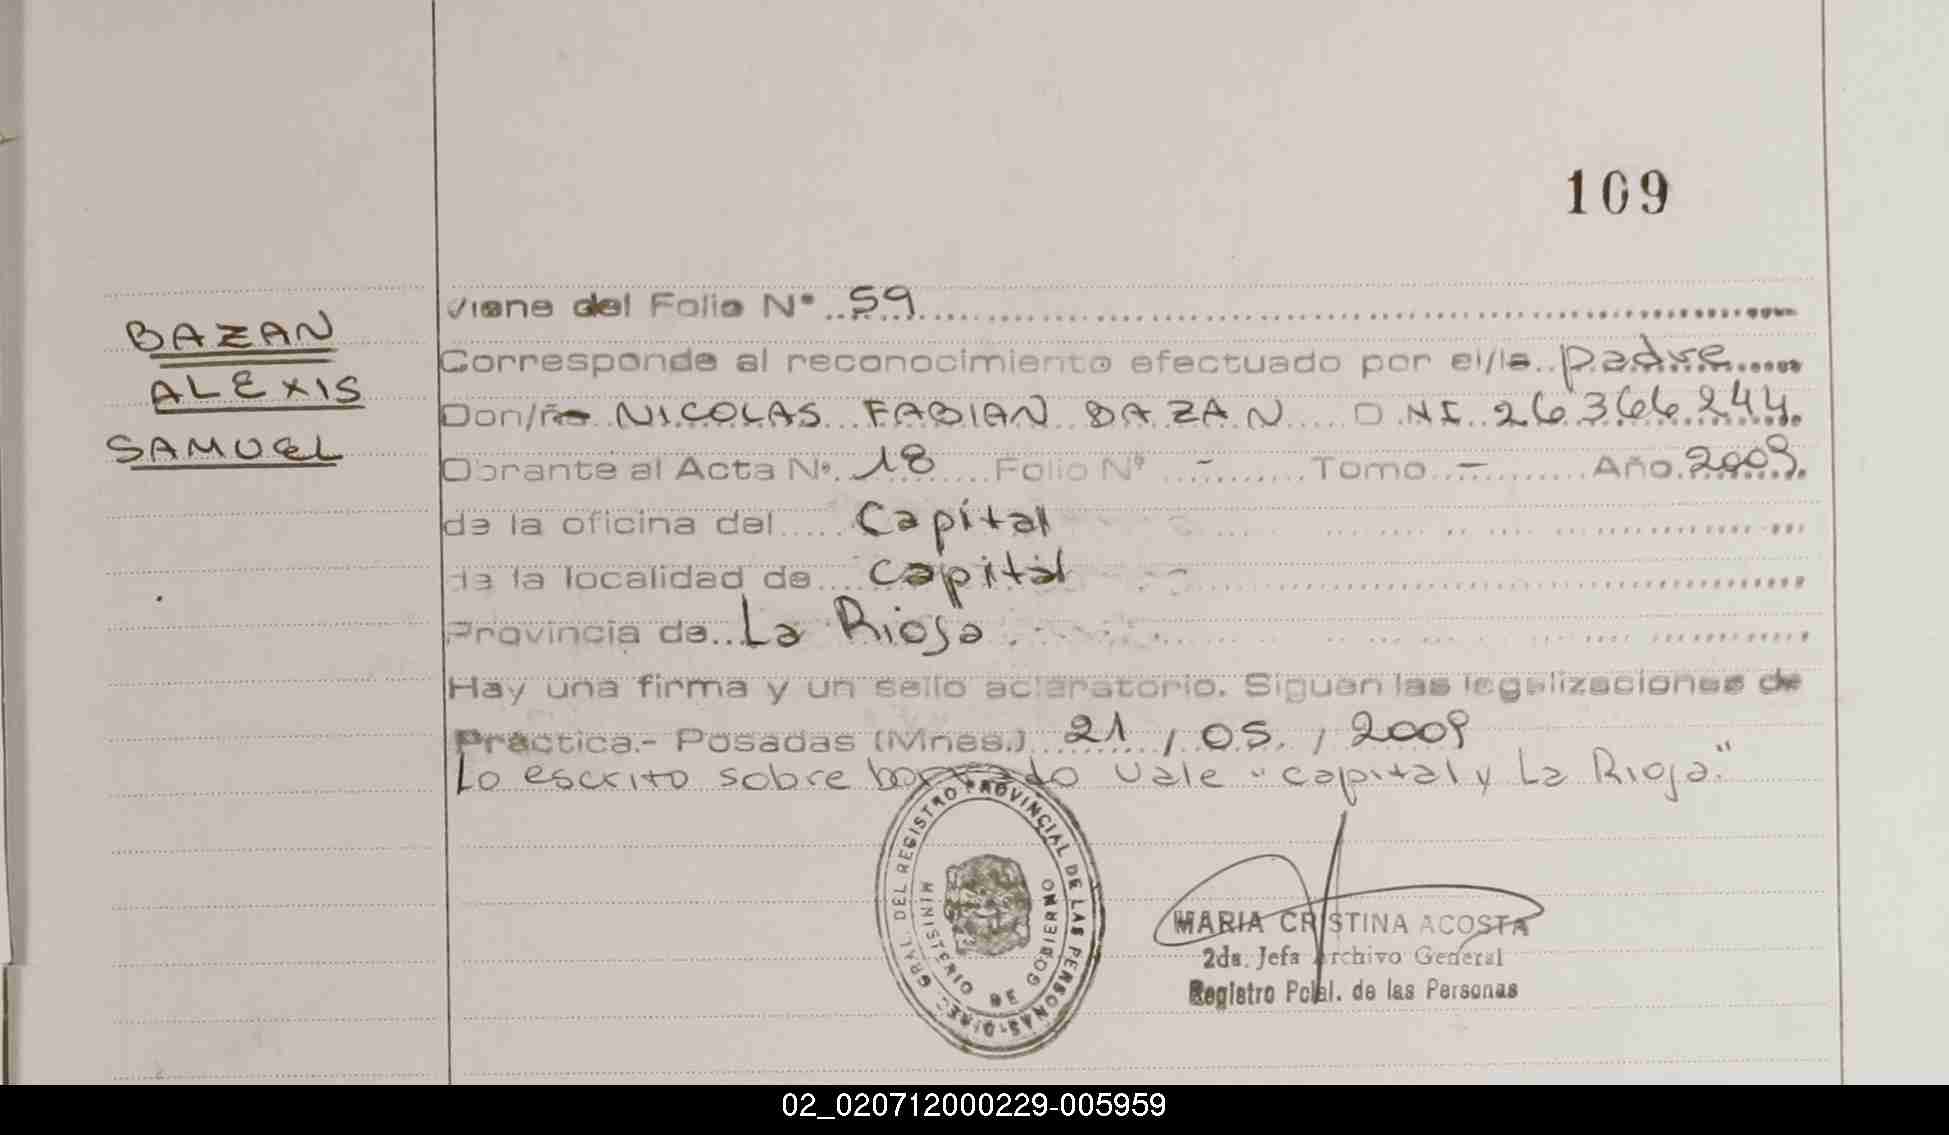 109
BAZAN
ALEXIS
SAMUEL
Viene del Folio N° 59
Corresponde al reconocimiento efectuado por el/la padre
Don/ña NICOLAS FABIAN BAZAN D.NI 26.366.244.
Obrante al Acta N° 18 Folio N° - Tomo - Año 2009.
de la oficina del Capital
de la localidad de Capital
Provincia de La Rioja
Hay una firma y un sello aclaratorio. Siguen las legalizaciones de
Práctica.- Posadas (Mnes.) 21 / 05 / 2009
Lo escrito sobre borrado vale "capital y La Rioja."
DIREC. GRAL. DEL REGISTRO PROVINCIAL DE LAS PERSONAS
MINISTERIO DE GOBIERNO
MARIA CRISTINA ACOSTA
2da. Jefa Archivo General
Registro Pcial. de las Personas
02_020712000229-005959